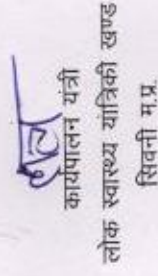 कार्यपालन यंत्री
लोक स्वास्थ्य यांत्रिकी खण्ड
सिवनी म.प्र.